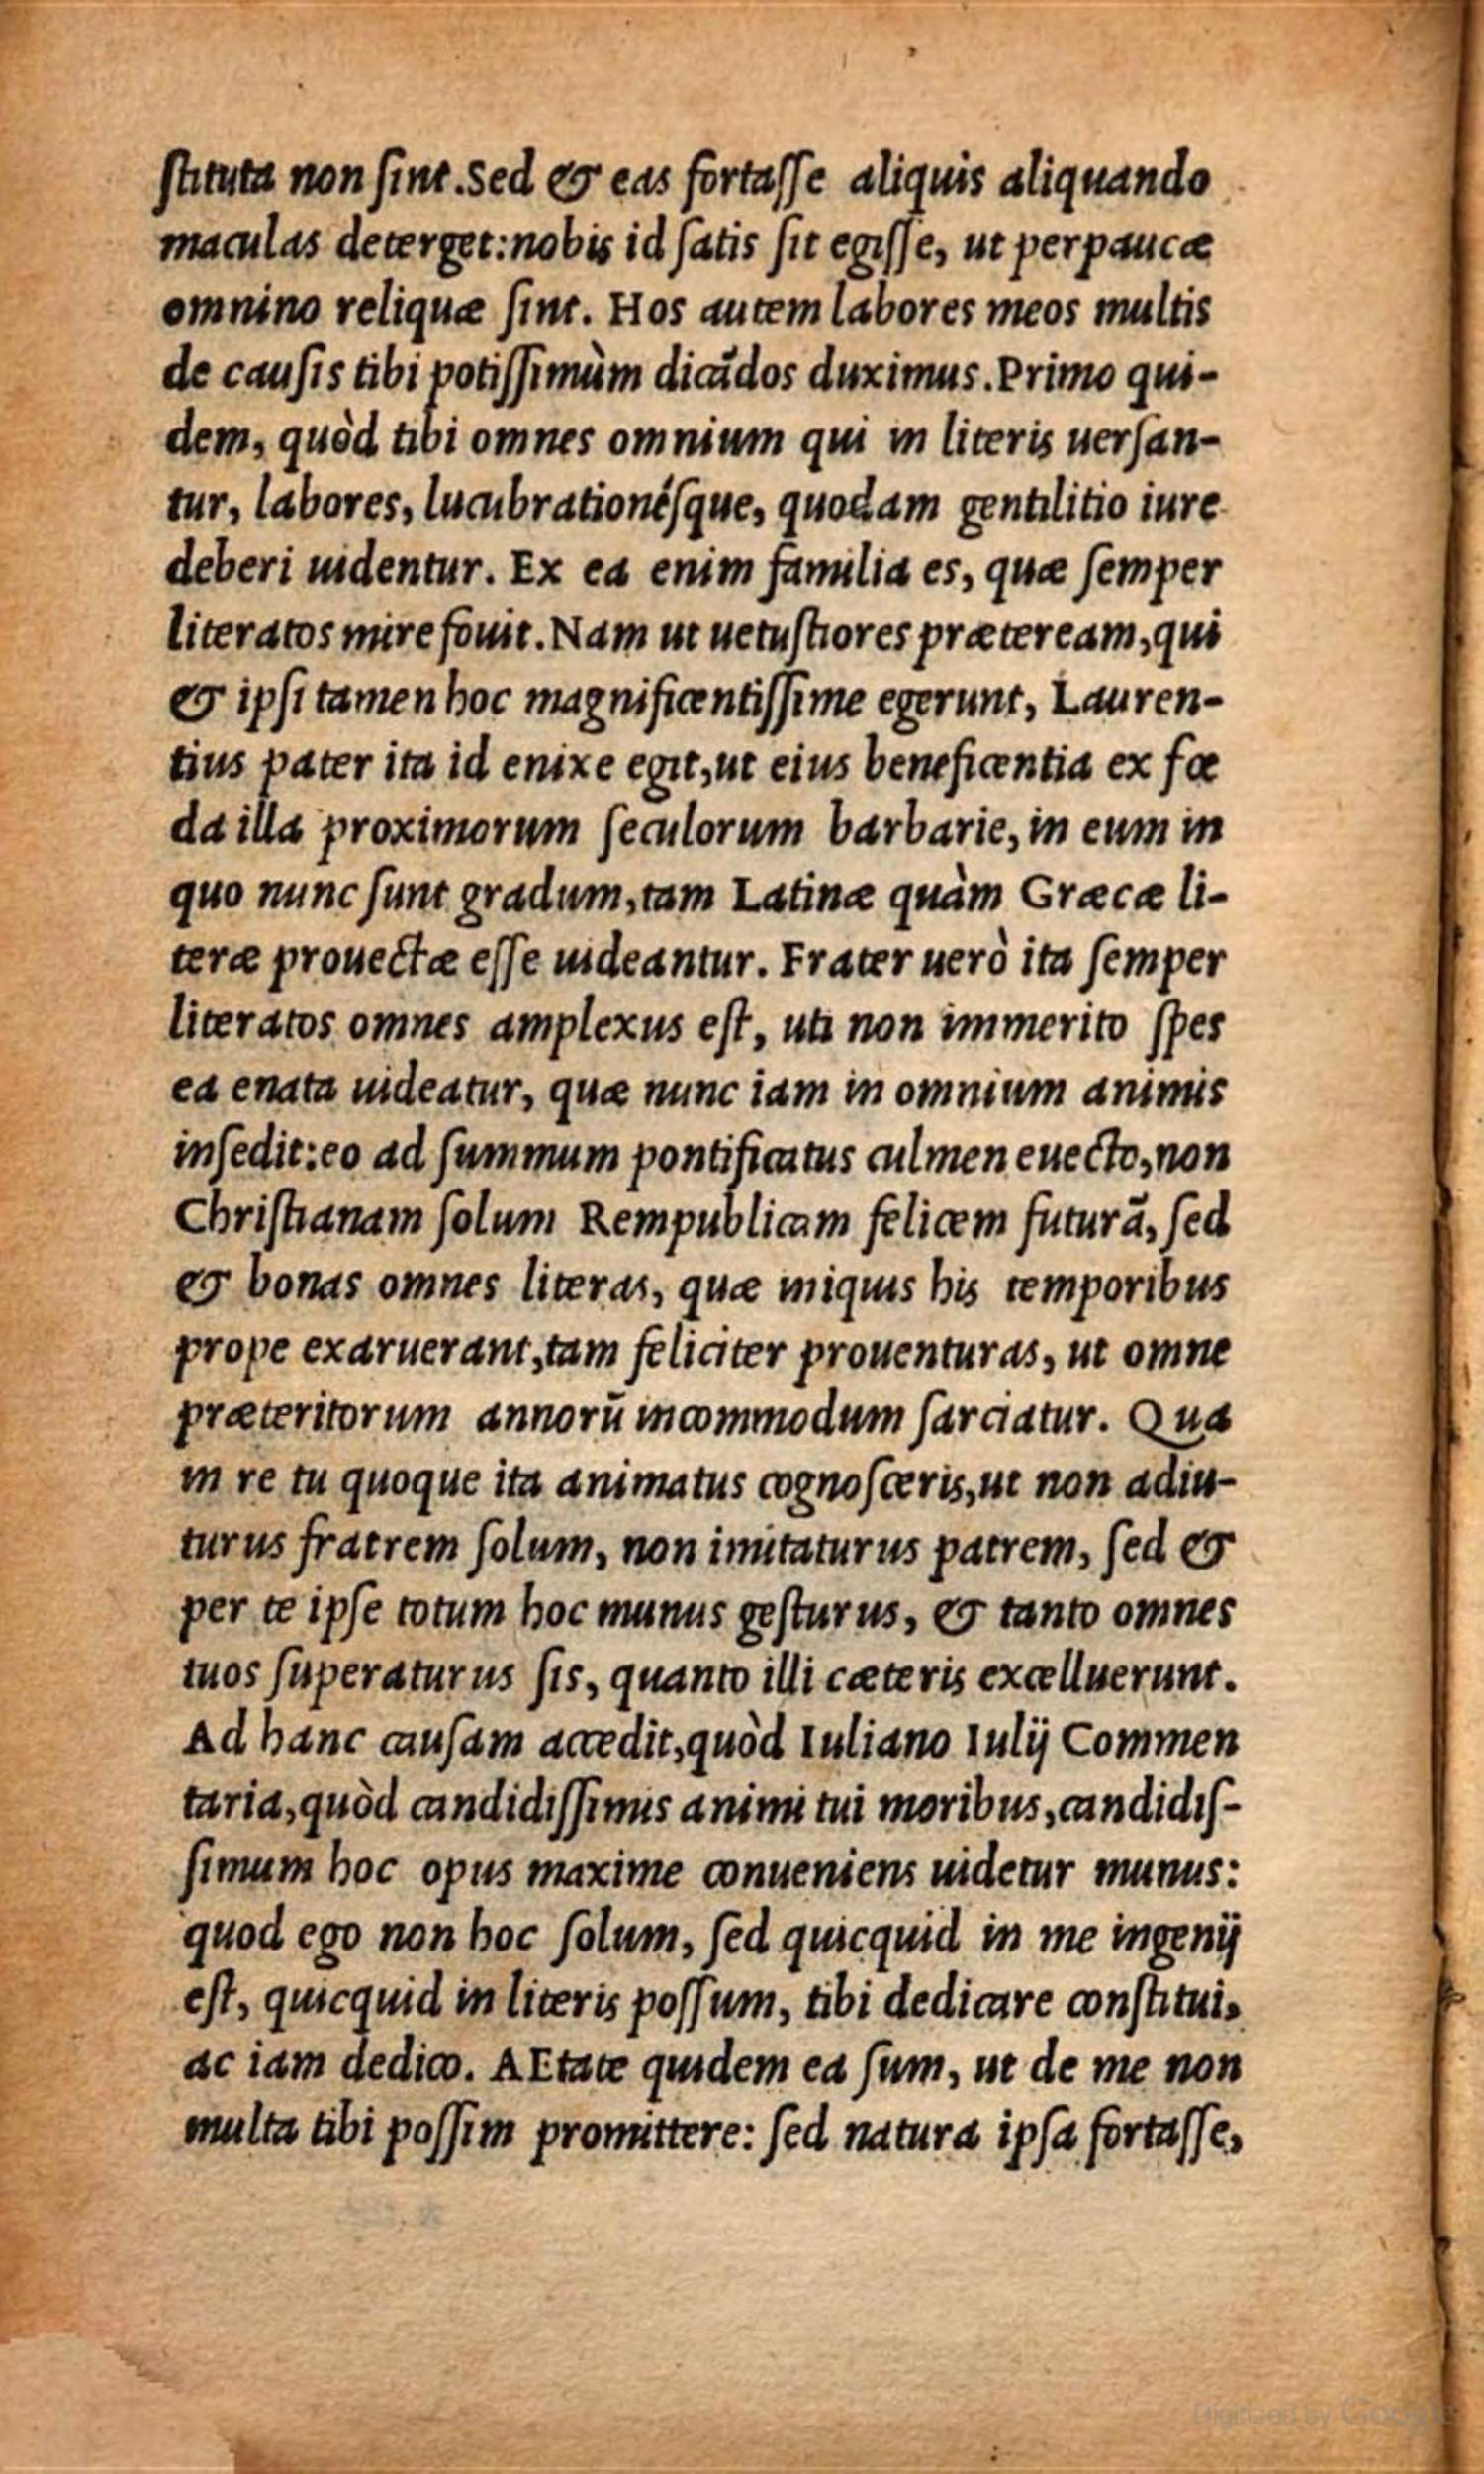 ſtituta non ſint.Sed & eas fortaſſe aliquis aliquando
maculas deterget:nobis id ſatis ſit egiſſe, ut perpaucæ
omnino reliquæ ſint. Hos autem labores meos multis
de cauſis tibi potiſſimùm dicãdos duximus.Primo qui-
dem, quòd tibi omnes omnium qui in literis uerſan-
tur, labores, lucubrationéſque, quodam gentilitio iure
deberi uidentur. Ex ea enim familia es, quæ ſemper
literatos mire fouit.Nam ut uetuſtiores præteream,qui
& ipſi tamen hoc magnificentiſſime egerunt, Lauren-
tius pater ita id enixe egit,ut eius beneficentia ex fœ
da illa proximorum ſeculorum barbarie,in eum in
quo nunc ſunt gradum,tam Latinæ quàm Græcæ li-
teræ prouectæ eſſe uideantur. Frater uerò ita ſemper
literatos omnes amplexus eſt, uti non immerito ſpes
ea enata uideatur, quæ nunc iam in omnium animis
inſedit:eo ad ſummum pontificatus culmen euecto,non
Chriſtianam ſolum Rempublicam felicem futurã, ſed
& bonas omnes literas, quæ iniquis his temporibus
prope exaruerant,tam feliciter prouenturas, ut omne
præteritorum annorũ incommodum ſarciatur. Qua
in re tu quoque ita animatus cognoſceris,ut non adiu-
turus fratrem ſolum, non imitaturus patrem, ſed &
per te ipſe totum hoc munus geſturus, & tanto omnes
tuos ſuperaturus ſis, quanto illi cæteris excelluerunt.
Ad hanc cauſam accedit,quòd Iuliano Iulij Commen
taria,quòd candidiſſimis animi tui moribus,candidiſ-
ſimum hoc opus maxime conueniens uidetur munus:
quod ego non hoc ſolum, ſed quicquid in me ingenij
eſt, quicquid in literis poſſum, tibi dedicare conſtitui,
ac iam dedico. AEtate quidem ea ſum, ut de me non
multa tibi poſſim promittere: ſed natura ipſa fortaſſe,
Digitized by Google